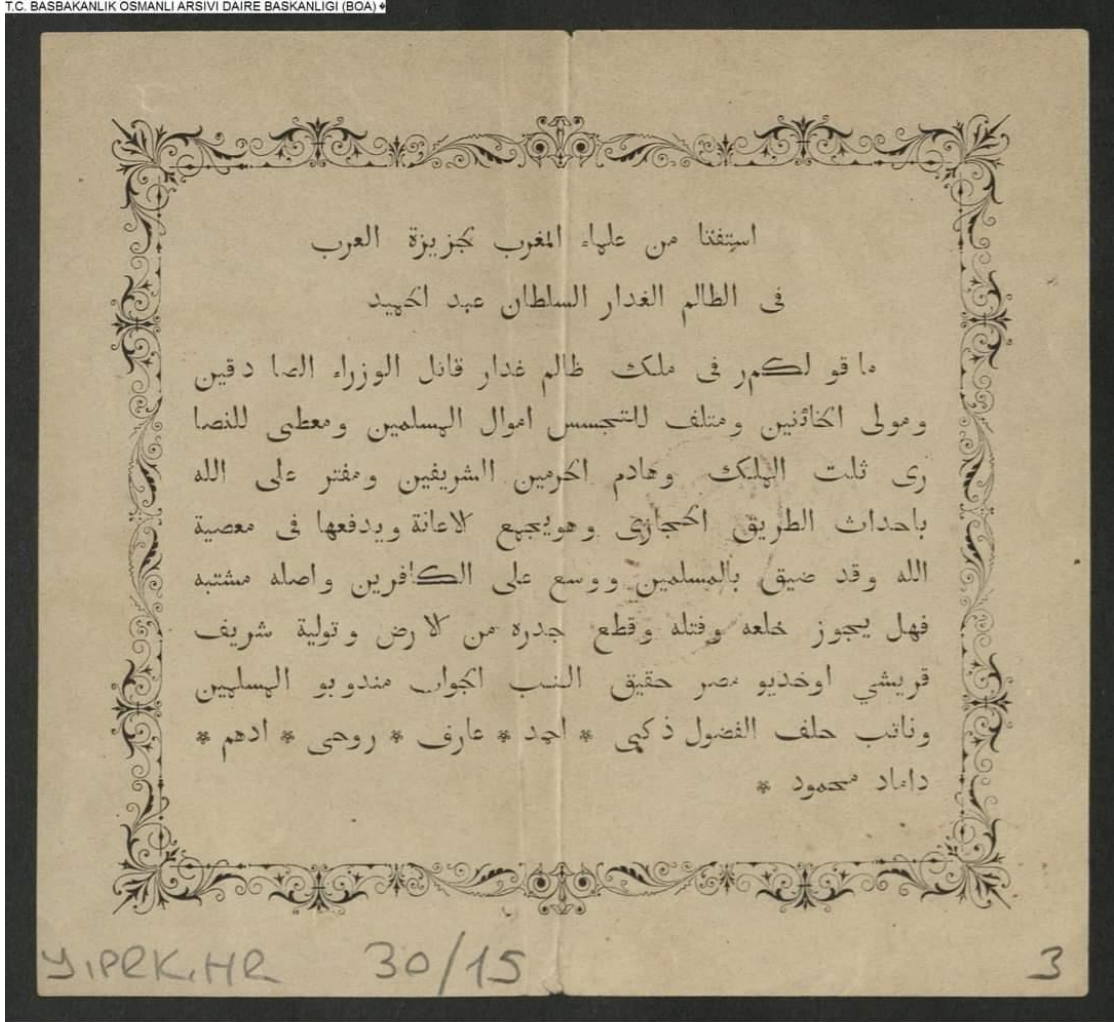 T.C. BASBAKANLIK OSMANLI ARSIVI DAIRE BASKANLIGI (BOA) �
استفتا من علماء المغرب بجزيزة العرب
فى الظالم الغدار السلطان عبد الحميد
ما قو لكم فى ملك ظالم غدار قاتل الوزراء الصا دقين
ومولى الخائنين ومتلف للتجسس اموال المسلمين ومعطى للنصا
رى ثلث الملك وهادم الحرمين الشريفين ومفتر على الله
باحداث الطريق الحجازى وهويجمع الاعانة ويدفعها فى معصية
الله وقد ضيق بالمسلمين ووسع على الكافرين واصله مشتبه
فهل يجوز خلعه وقتله وقطع جدره من الا رض وتولية شريف
قريشي اوخديو مصر حقيق النسب الجواب مندوبو المسلمين
ونائب حلف الفضول ذكى * احمد * عارف * روحى * ادهم *
داماد محمود *
Y.PRK.HR 30/15 3